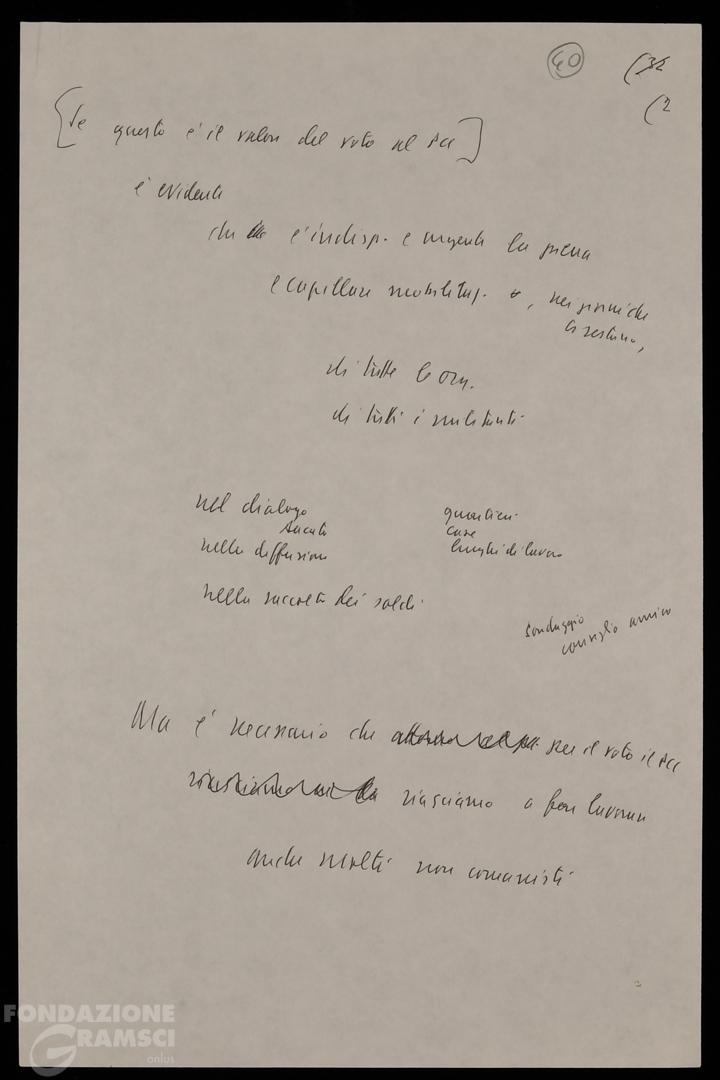 40
(32
(2
[Se questo è il valore del voto al PCI]
è evidente
che è indisp. e urgente la piena
e capillare mobilitaz. , nei giorni che
ci restano,
di tutte le org.
di tutti i militanti
nel dialogo
quartieri
case
nella diffusione
luoghi di lavoro
nella raccolta dei soldi
sondaggio
consiglio amico
Ma è necessario che per il voto il PCI
riusciamo a far lavorare
anche molti non comunisti
FONDAZIONE
GRAMSCI
onlus